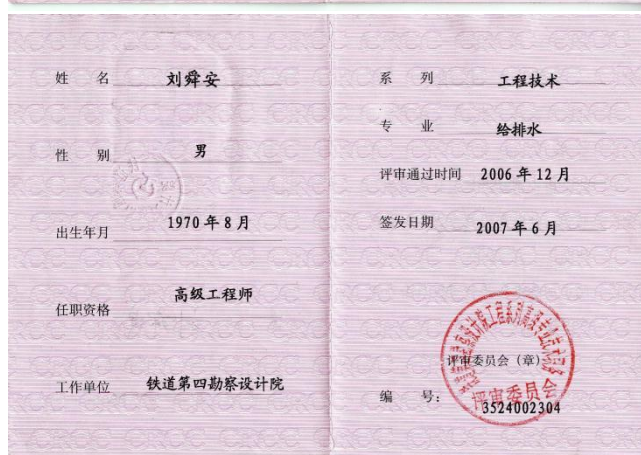 姓 名 刘舜安
性 别 男
出生年月 1970年8月
任职资格 高级工程师
工作单位 铁道第四勘察设计院
系 列 工程技术
专 业 给排水
评审通过时间 2006年12月
签发日期 2007年6月
评审委员会（章）
评审委员会
编 号： 3524002304